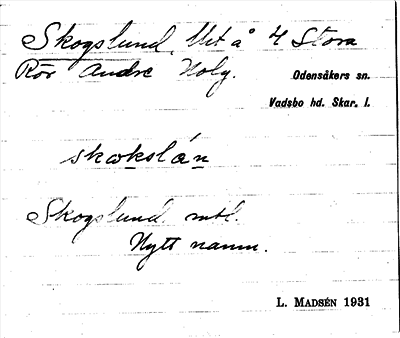 Skogslund, Ut å 4 Stora
Rör Andre Holg.
Odensåkers sn.
Vadsbo hd. Skar. l.
skωkslán
Skogslund mtl.
Nytt namn.
L. MADSÉN 1931